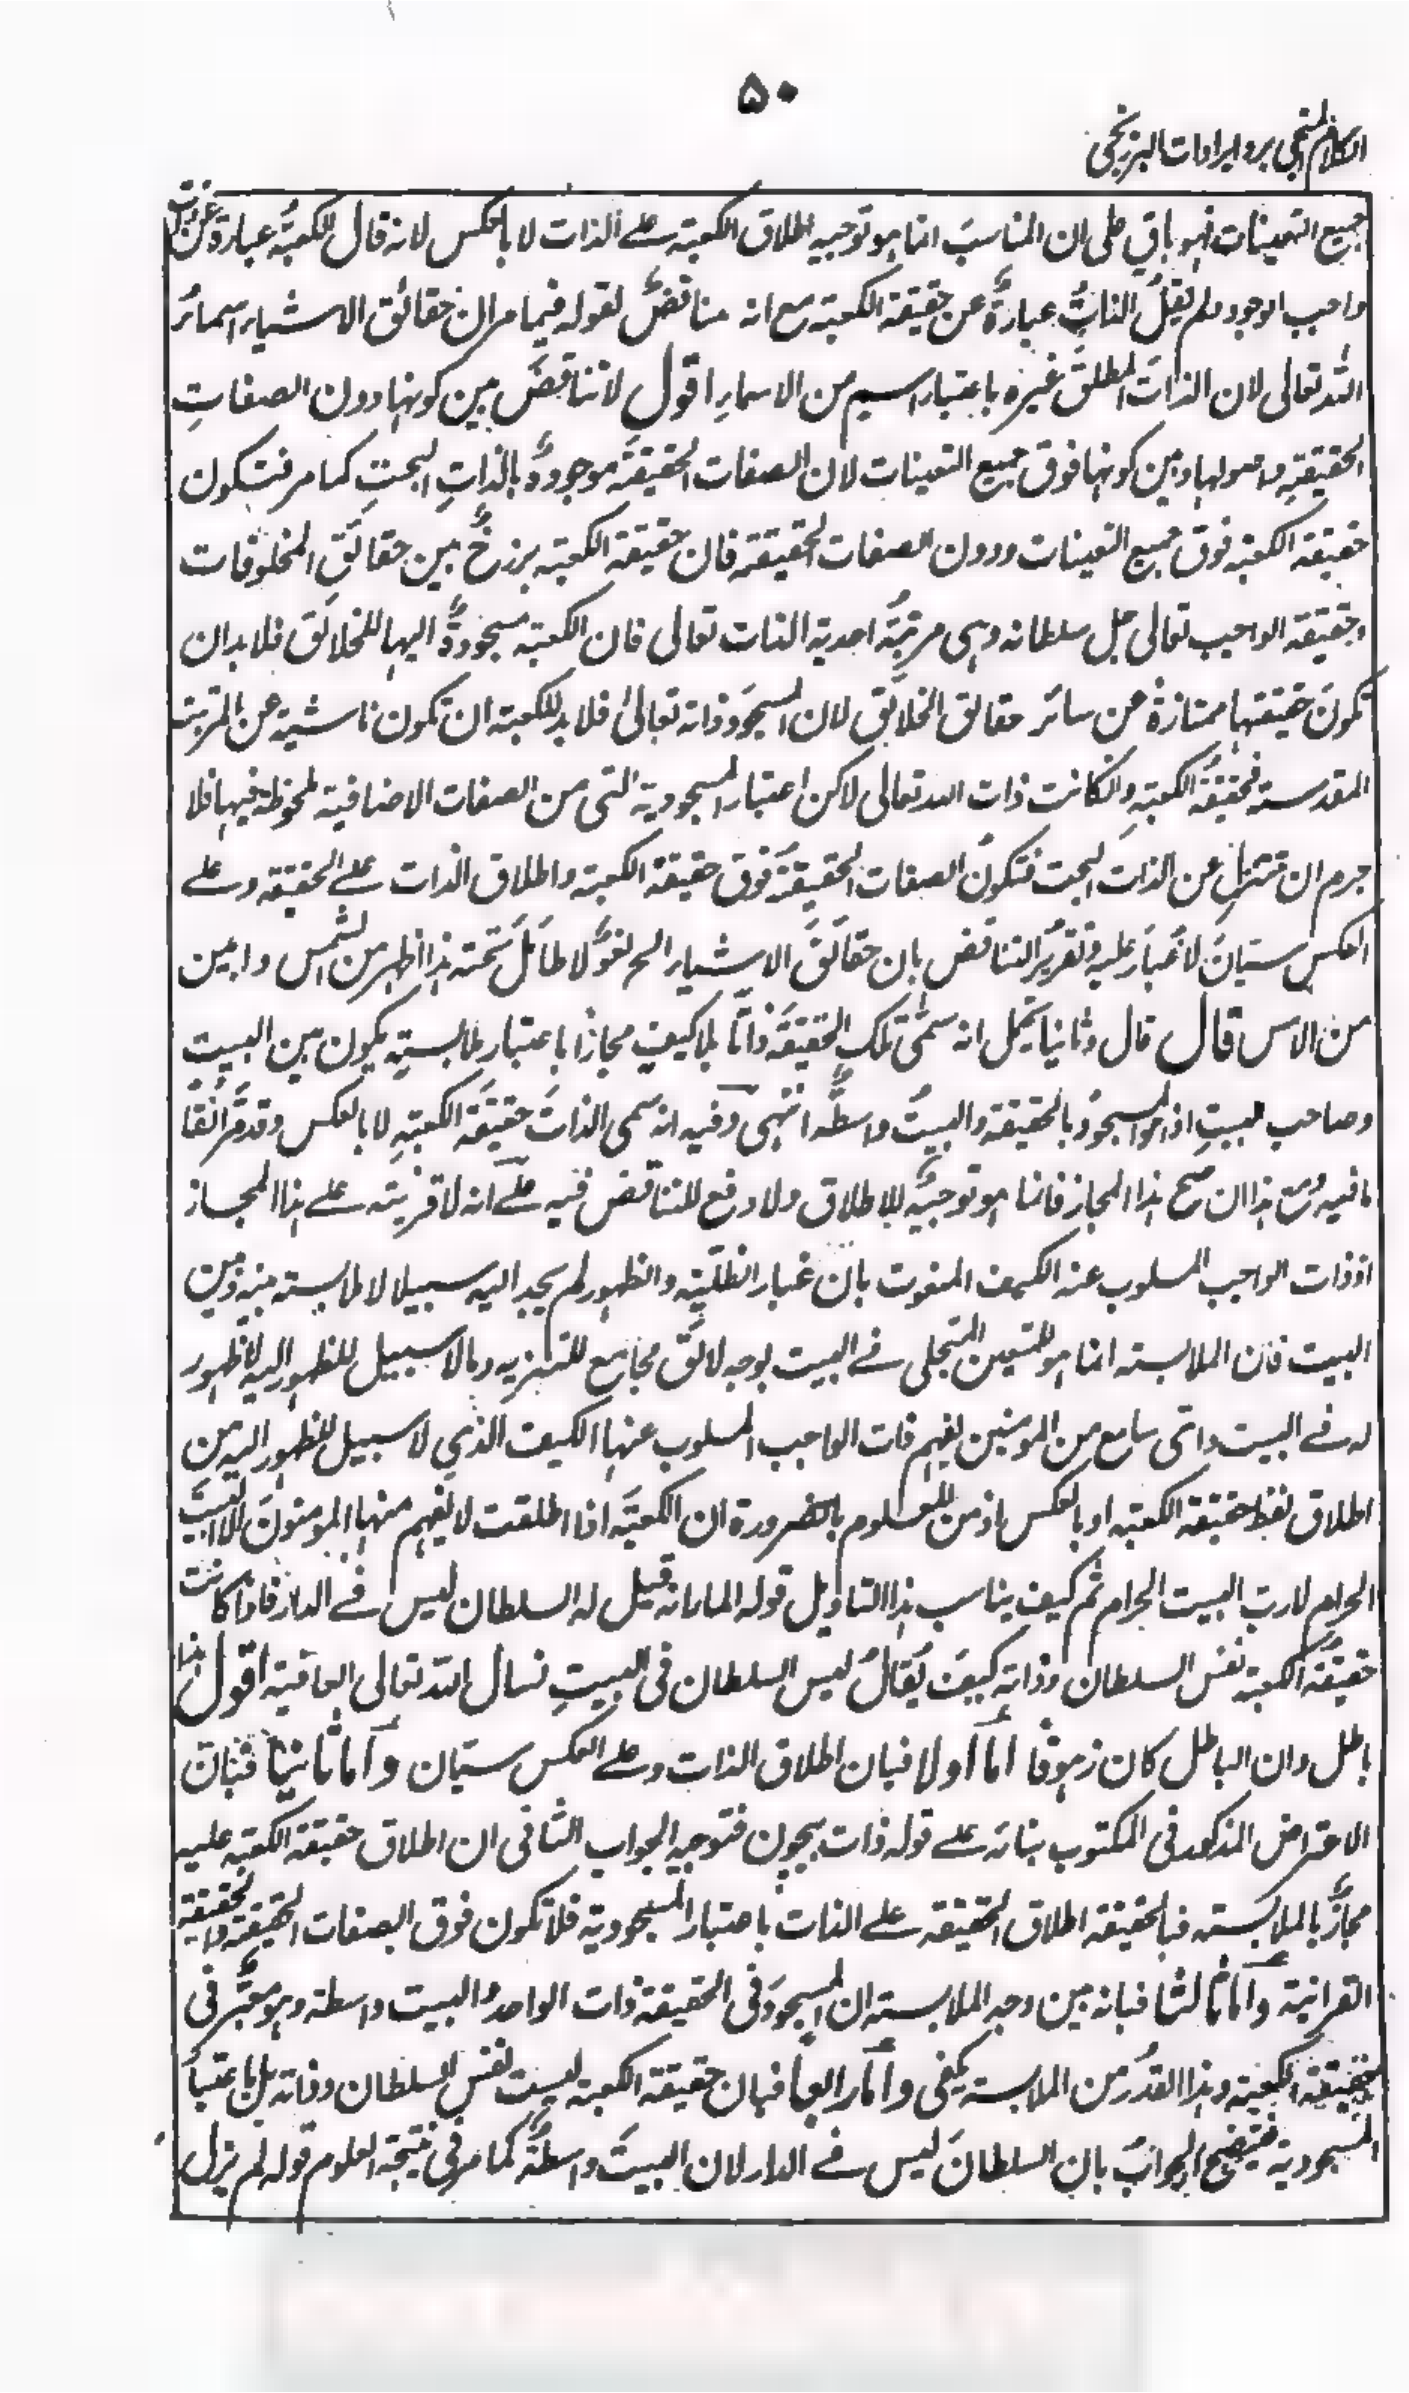 ۵۰
الكلام المنجي برد ايرادات البرزنجي
جميع التعينات فهو باق على ان المناسبَ انما هو توجيه اطلاق الكعبة على الذات لا بالعكس لانه قال الكعبةُ عبارة عن ذات
واجب الوجود ولم يقل الذاتُ عبارةٌ عن حقيقة الكعبة مع انه مناقضٌ لقوله فيما مر ان حقائق الاشياء اسماءُ
الله تعالى لان الذاتَ المطلقَ غيره باعتبار اسم من الاسماءِ اقول لا تناقضَ بين كونها دون الصفاتِ
الحقيقةِ واصولها وبين كونها فوق جميع التعينات لان الصفات الحقيقةَ موجودةٌ بالذاتِ البحتِ كما مر فتكون
حقيقة الكعبة فوق جميع التعينات ودون الصفات الحقيقة فان حقيقة الكعبة برزخٌ بين حقائقِ المخلوقات
وحقيقة الواجب تعالى جل سلطانه وهي مرتبةُ احدية الذات تعالى فان الكعبة مسجودةٌ اليها للخلائق فلا بد ان
تكونَ حقيقتها ممتازةً عن سائر حقائق الخلائق لان المسجودَ ذاته تعالىٰ فلا بد للكعبة ان تكون ناشية عن المرتبة
المقدسة فحقيقةُ الكعبةِ وان كانت ذات الله تعالى لاكن اعتبار المسجودية التي من الصفات الاضافية ملحوظة فيها فلا
جرم ان تتنزل عن الذات البحت فتكونُ الصفات الحقيقةُ فوق حقيقة الكعبة واطلاق الذات على الحقيقة وعلى
العكس سيّانِ لا غبارَ عليه وتقريرُ التناقض بان حقائقَ الاشياء الخ لغوٌ لا طائلَ تحته هذا اظهر من الشمس وابين
من الامس قال قال وثانيا يحتمل انه سمّى تلك الحقيقةَ ذاتًا بلا كيف مجازًا باعتبار ملابسةٍ يكون بين البيت
وصاحب البيتِ اذ هو المسجودُ بالحقيقة والبيتُ واسطةٌ انتهى وفيه انه سمى الذاتَ حقيقةَ الكعبةِ لا بالعكس وقد مرَّ آنفًا
ما فيه ومع هذا ان صح هذا المجاز فانما هو توجيهٌ للاطلاق ولا دفع للتناقض فيه على انه لا قرينة على هذا المجاز
اذ ذات الواجب المسلوب عنه الكيف المنعوت بان غبار الظلّية والظهور لم يجد اليه سبيلا لا ملابسة بينه وبين
البيت فان الملابسة انما هو للمتعين المتجلى في البيت بوجه لائق مجامع للتنزيه وما لا سبيل للظهور اليه لا ظهور
له في البيت واتى سامع من المومنين يفهم ذات الواجب المسلوب عنها الكيف الذي لا سبيل للظهور اليه من
اطلاق لفظ حقيقة الكعبة او بالعكس اذ من المعلوم بالضرورة ان الكعبةَ اذا اطلقت لا يفهم منها المومنون الا البيتَ
الحرام لا رب البيت الحرام ثم كيف يناسب هذا التاويل قوله المار انه قيل له السلطان ليس في الدار فاذا كانت
حقيقةُ الكعبة نفس السلطان وذاته كيف يُقال ليس السلطان في البيتِ نسال الله تعالى العافية اقول هذا
باطل وان الباطل كان زهوقا امّا اولا فبان اطلاق الذات وعلى العكس سيّان وامّا ثانيا فبان
الاعتراض المذكور في المكتوب بنائه على قوله ذات بيچون فتوجيه الجواب الثاني ان اطلاق حقيقة الكعبة عليه
مجازٌ بالملابسته فبالحقيقة اطلاق الحقيقة على الذات باعتبار المسجودية فلا تكون فوق الصفات الحقيقة والحقيقة
القرانية وامّا ثالثا فبانه بين وجه الملابسة ان المسجودَ في الحقيقة ذات الواحد والبيت واسطة وهو معتبر في
حقيقة الكعبة وهذا القدر من الملابسة يكفي وامّا رابعا فبان حقيقة الكعبة ليست نفس السلطان وذاته بل باعتبار
المسجودية فيتضح الجوابُ بان السلطانَ ليس في الدار لان البيتَ واسطةٌ كما مر في نتيجة العلوم قوله لم يزل